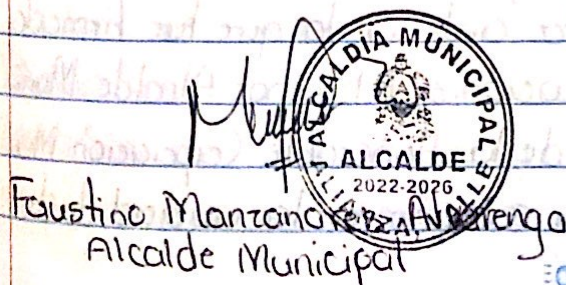 ALCALDIA MUNICIPAL
ALCALDE
2022-2026
ALIANZA, VALLE
Faustino Manzanares Alvarenga
Alcalde Municipal